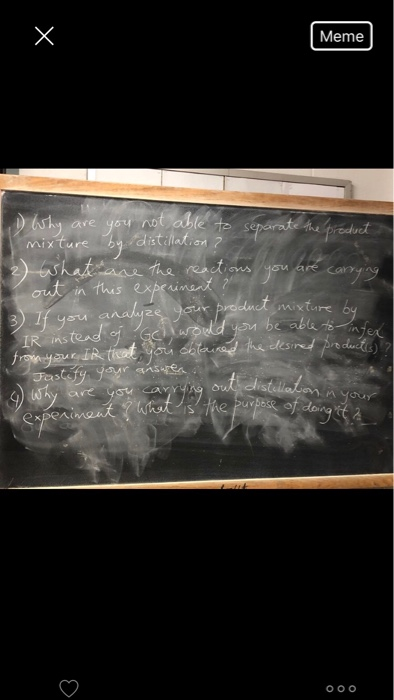 Meme
1) Why are you not able to separate the product
mixture by distillation?
2) What are the reactions you are carrying
out in this experiment?
3) If you analyze your product mixture by
IR instead of GC, would you be able to infer
from your IR that you obtained the desired product(s)?
Justify your answer.
4) Why are you carrying out distillation in your
experiment? What is the purpose of doing it?